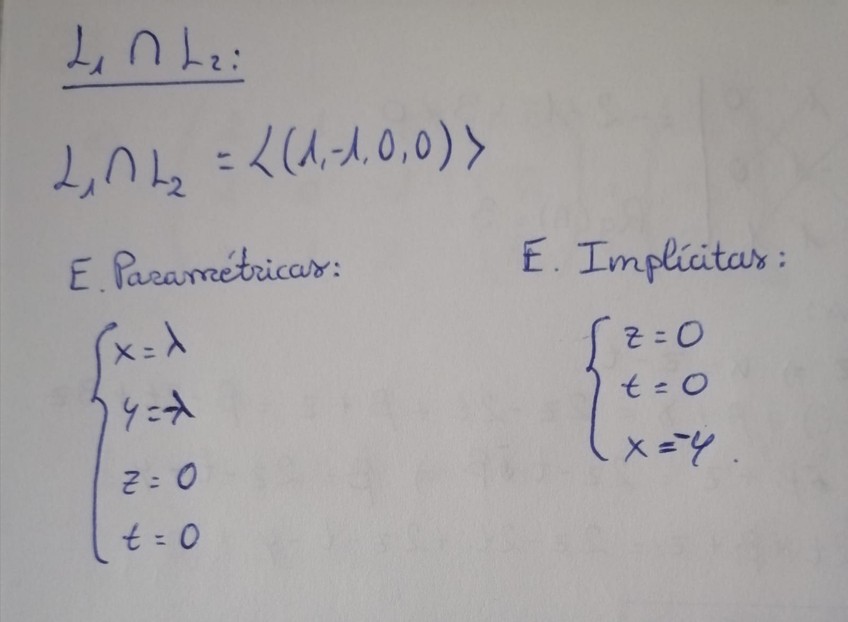 L₁ ∩ L₂:
L₁ ∩ L₂ = <(1,-1,0,0)>
E. Paramétricas:
x = λ
y = -λ
z = 0
t = 0
E. Implícitas:
z = 0
t = 0
x = -y.